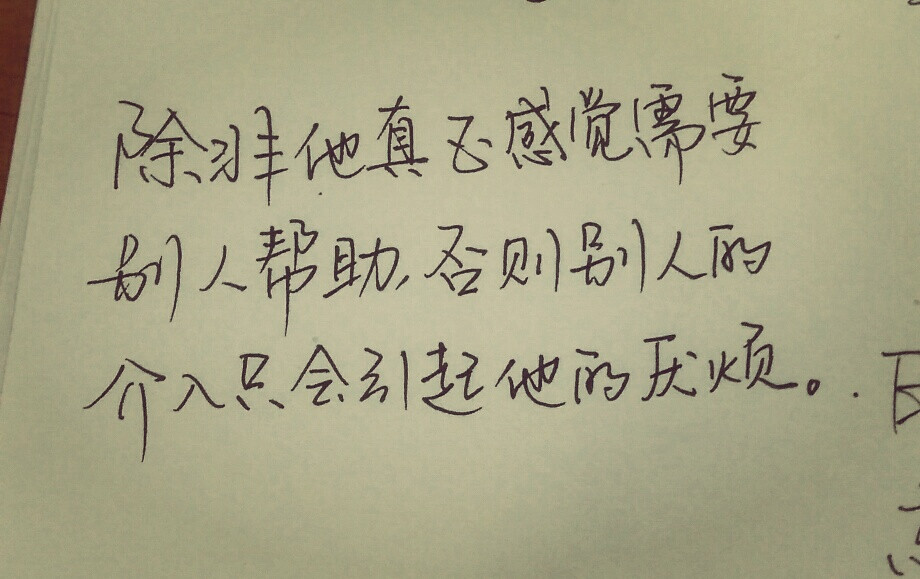 除非他真正感觉需要
别人帮助,否则别人的
介入只会引起他的厌烦。